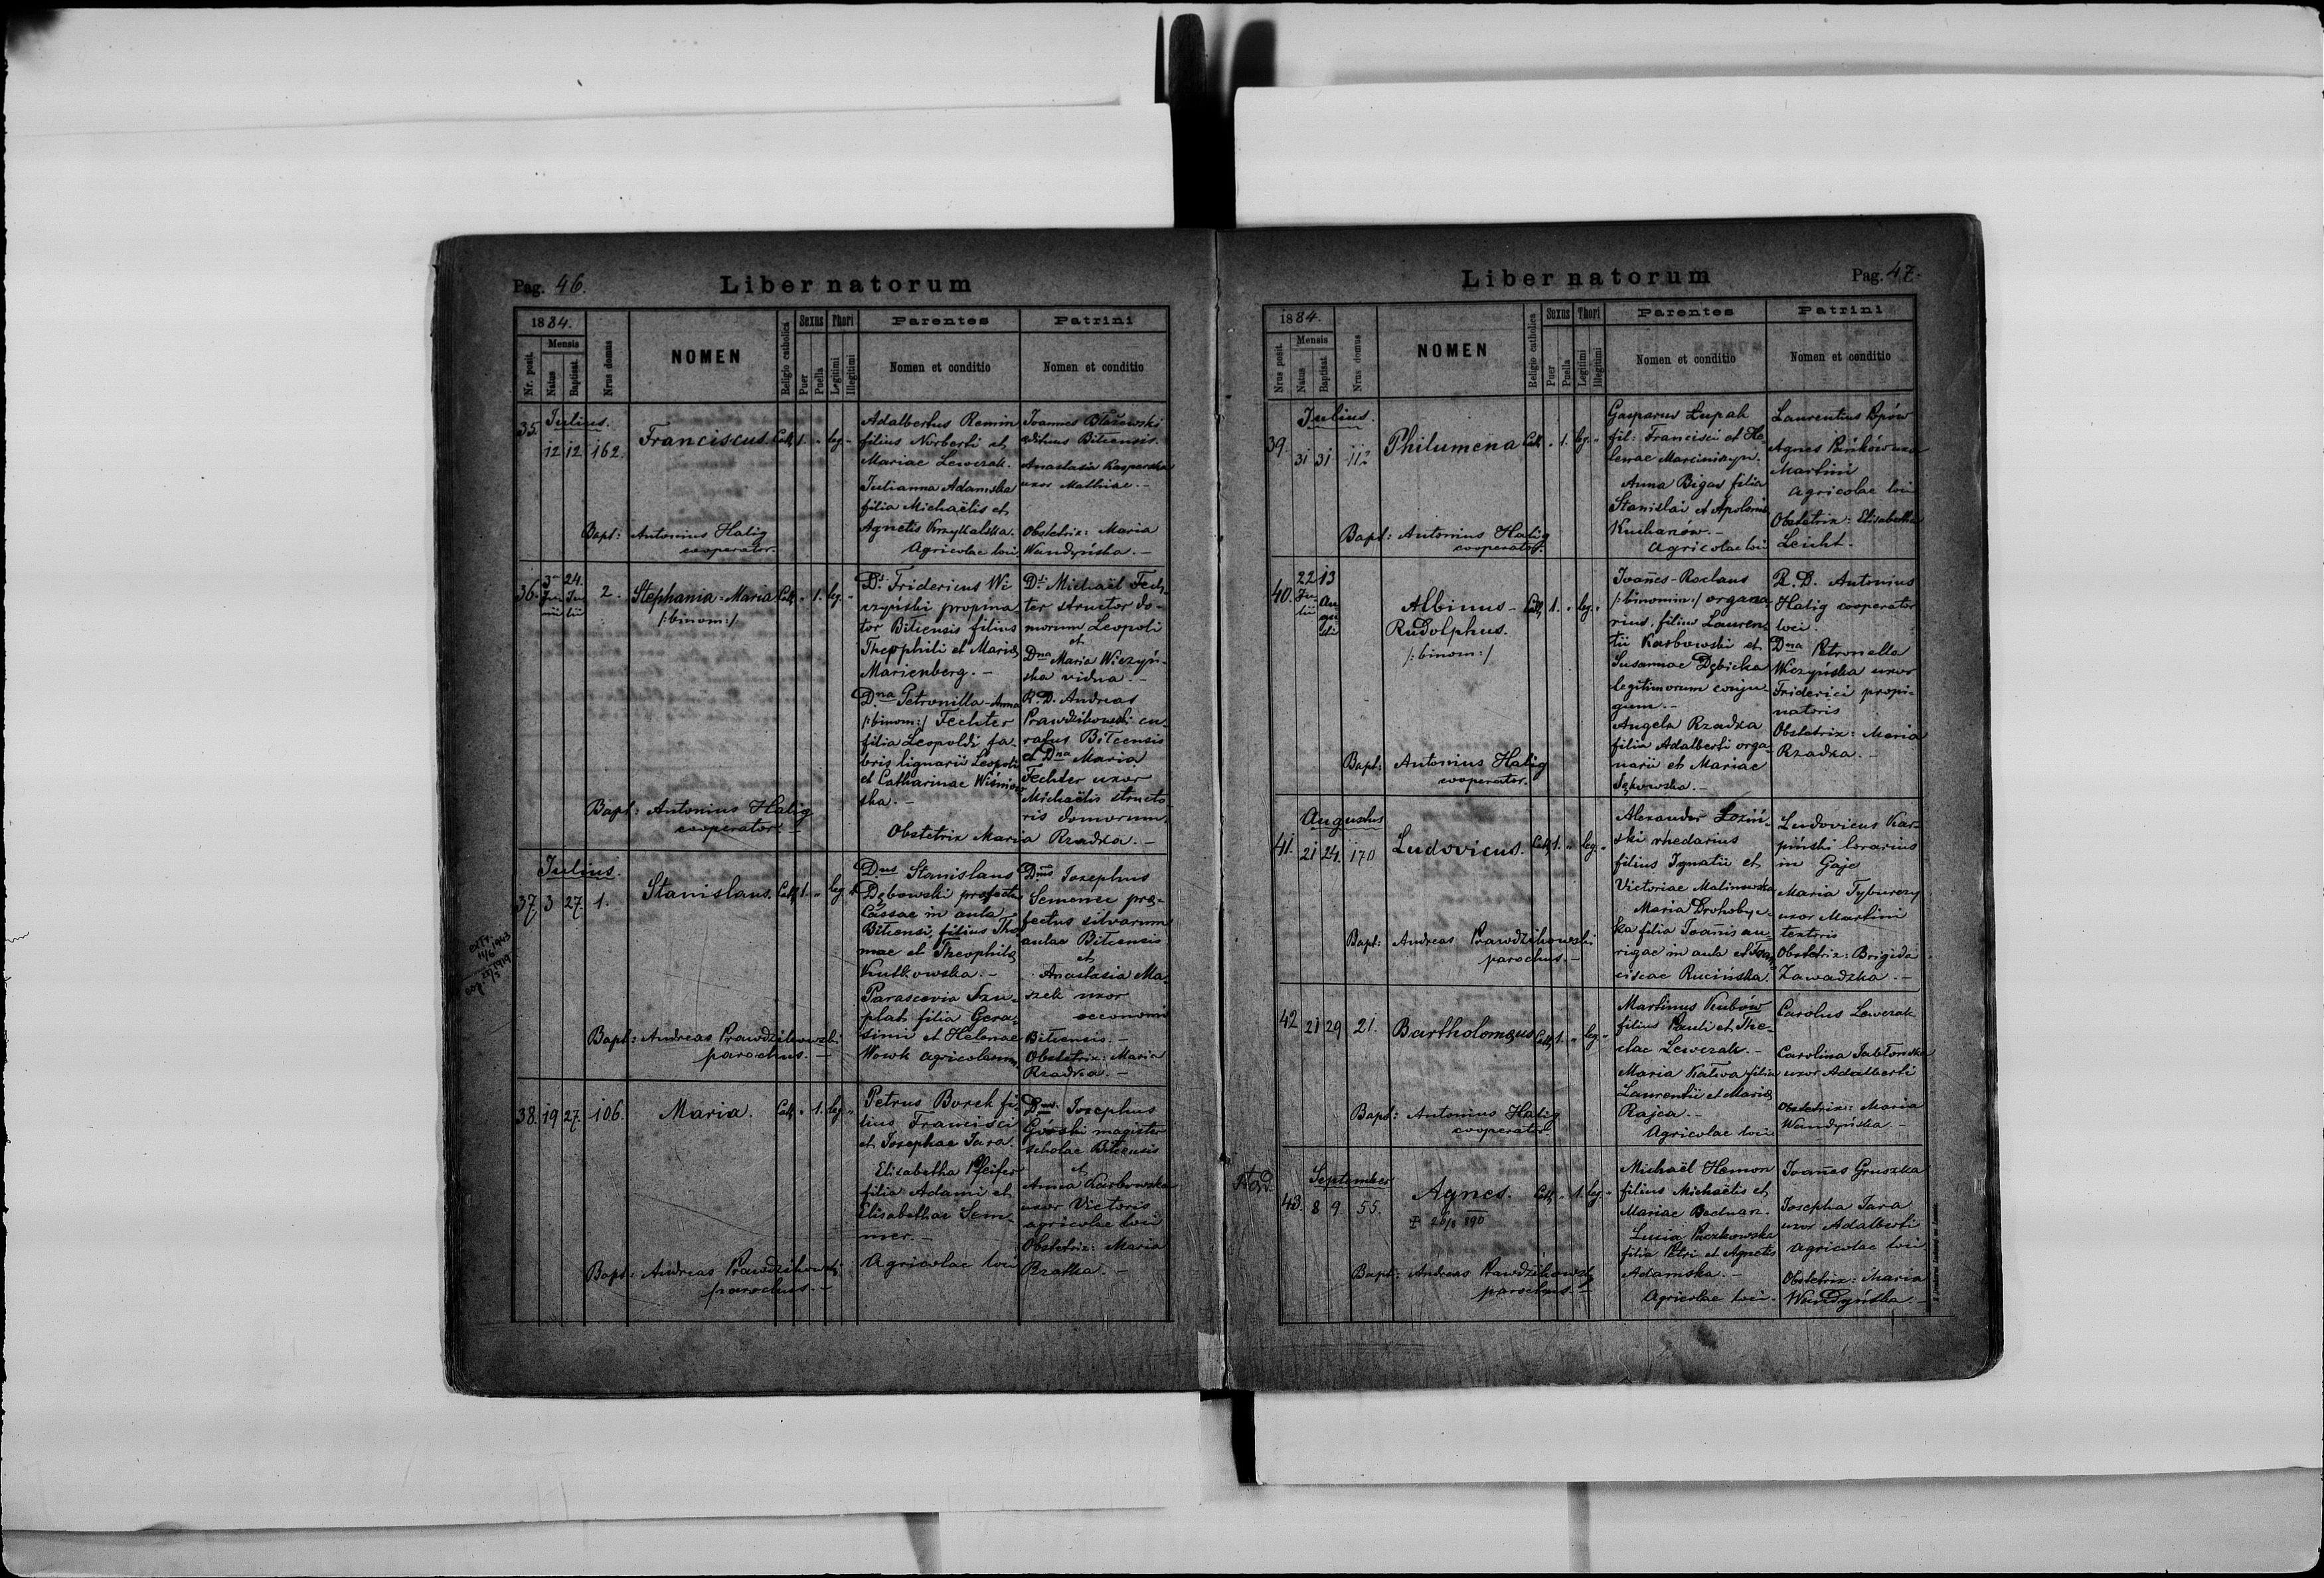 Pag. 46.
Liber natorum
1884.
Nr. posit.
Mensis
Natus
Baptisat.
Nrus domus
NOMEN
Religio catholica
Sexus
Puer
Puella
Thori
Legitimi
Illegitimi
Parentes
Nomen et conditio
Patrini
Nomen et conditio
35.
Julius.
12 12 162.
Franciscus. Cath. 1. " leg. "
Adalbertus Remin
filius Norberti et
Mariae Lewczak.
Julianna Adamska
filia Michaëlis et
Agnetis Krzykalska.
Agricolae loci
Joannes Błażewski
aedituus Bilcensis.
Anastasia Kasperska
uxor Mathiae. -
Obstetrix: Maria
Wandyńska. -
Bapt: Antonius Halig
cooperator.
36.
3 Junii
24. Julii
2.
Stephania-Maria Cath. " 1. leg. "
/:binom:/
D. Fridericus Wi
czyński propina
tor Bilcensis filius
Theophili et Mariae
Marienberg. -
Dna Petronilla-Anna
/:binom:/ Fechter
filia Leopoldi fa-
bris lignarii Leopoli
et Catharinae Wiśniew
ska. -
D. Michaël Fech-
ter structor do-
morum Leopoli
et
Dna Maria Wiczyń-
ska vidua. -
R. D. Andreas
Prawdzikowski cu-
ratus Bilcensis
et Dna Maria
Fechter uxor
Michaëlis structo
ris domorum.
Obstetrix Maria Rzadka. -
Bapt: Antonius Halig
cooperator. -
Julius.
37. 3 27. 1.
Stanislaus. Cath. 1. " leg. "
Dnus Stanislaus
Dębowski profectus
Cassae in aula
Bilcensi, filius Tho
mae et Theophilae
Kutkowska. -
Parascevia Szu-
plat filia Gera-
simi et Helenae
Wowk agricolarum.
Dnus Josephus
Semenec prae-
fectus silvarum
aulae Bilcensis
et
Anastasia Ma-
szek uxor
oeconomi
Bilcensis. -
Obstetrix: Maria
Rzadka. -
Bapt: Andreas Prawdzikowski
parochus. -
38. 19 27. 106.
Maria. Cath. " 1. leg. "
Petrus Borek fi-
lius Francisci
et Josephae Jara.
Elisabetha Pfeifer
filia Adami et
Elisabethae Sem-
mer. -
Agricolae loci
Dnus Josephus
Górski magister
scholae Bilcensis
et
Anna Karbowska
uxor Victoris
agricolae loci
Obstetrix: Maria
Rzatka. -
Bapt: Andreas Prawdzikowski
parochus. -
Liber natorum
Pag. 47.
1884.
Nrus posit.
Mensis
Natus
Baptisat.
Nrus domus
NOMEN
Religio catholica
Sexus
Puer
Puella
Thori
Legitimi
Illegitimi
Parentes
Nomen et conditio
Patrini
Nomen et conditio
39.
Julius.
31 31 112
Philumena Cath. " 1. leg. "
Gasparus Łupak
fil: Francisci et He-
lenae Marciniszyn.
Anna Bigas filia
Stanislai et Apoloniae
Kucharów. -
Agricolae loci
Laurentius
Agnes uxor
Martini
Agricolae loci
Obstetrix: Elisabetha
Leicht.
Bapt: Antonius Halig
cooperator.
40.
22 Julii
13 Augusti
Albinus- Cath. 1. " leg. "
Rudolphus.
/:binom:/
Joañes-
/:binomin:/ organa-
rius, filius Lauren-
tii Karbowski et
Susannae Dębicka
legitimorum conju-
gum. -
Angela Rzadka
filia Adalberti orga-
narii et Mariae
R. D. Antonius
Halig cooperator
loci.
Dna Petronella
Wiczyńska uxor
Friderici propi-
natoris
Obstetrix: Maria
Rzadka. -
Bapt: Antonius Halig
cooperator.
Augustus
41. 21 24. 170
Ludovicus. Cath. 1. " leg. "
Alexander Łoziń-
ski rhedarius
filius Ignatii et
Victoriae Malinowska
Maria Drohobyc-
ka filia Joañis au-
rigae in aula et Fran
ciscae Rucińska.
Ludovicus Kar-
piński lorarius
in Gaje
Maria Tyburczy
uxor Martini
textoris
Obstetrix: Brigida
Zawadzka. -
Bapt: Andreas Prawdzikowski
parochus. -
42. 21 29 21.
Bartholomaeus Cath. 1. " leg. "
Martinus Kubów
filius Pauli et The-
clae Lewczak. -
Maria Kałwa filia
Laurentii et Mariae
Rajca. -
Agricolae loci
Carolus Lewczak
Carolina Jabłońska
uxor Adalberti
Obstetrix: Maria
Wandyńska. -
Bapt: Antonius Halig
cooperator
September
43. 8 9. 55.
Agnes. Cath. " 1. leg. "
Michaël Hemon
filius Michaëlis et
Mariae Bednarz.
Lucia Paczkowska
filia Petri et Agnetis
Adamska. -
Agricolae loci.
Joañes Gruszka
Josepha Jara
uxor Adalberti
Agricolae loci.
Obstetrix: Maria
Wandyńska. -
Bapt: Andreas Prawdzikowski
parochus. -